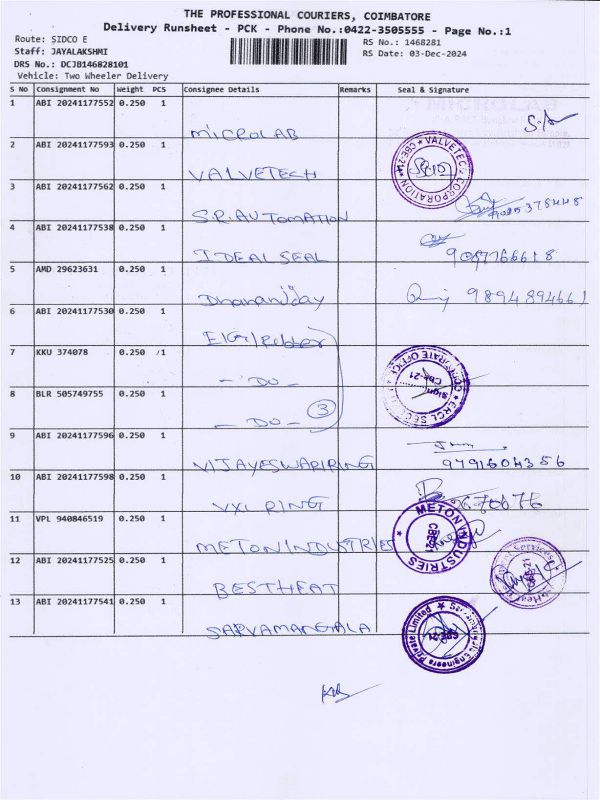 THE PROFESSIONAL COURIERS, COIMBATORE
Delivery Runsheet - PCK - Phone No.:0422-3505555 - Page No.:1
Route: SIDCO E
RS No.: 1468281
Staff: JAYALAKSHMI
RS Date: 03-Dec-2024
DRS No.: DCJB146828101
Vehicle: Two Wheeler Delivery
S No Consignment No Weight PCS Consignee Details Remarks Seal & Signature
1 ABI 20241177552 0.250 1
MICROLAB
2 ABI 20241177593 0.250 1
VALVETECH
VALVETECH CORPORATION ★ CBE-21 ★
3 ABI 20241177562 0.250 1
S.R.AUTOMATION
4 ABI 20241177538 0.250 1
IDEAL SEAL
5 AMD 29623631 0.250 1
Dhananjay 9894894661
6 ABI 20241177530 0.250 1
7 KKU 374078 0.250 1
- Do -
8 BLR 505749755 0.250 1
- Do - 3
9 ABI 20241177596 0.250 1
VIJAYESWARIRING 9791604356
10 ABI 20241177598 0.250 1
VXL RING
11 VPL 940846519 0.250 1
METON INDUSTRIES
METON INDUSTRIES CBE-21 ★
12 ABI 20241177525 0.250 1
BESTHEAT
13 ABI 20241177541 0.250 1
SARVAMANGALA
Engineers Private Limited ★ CBE-21